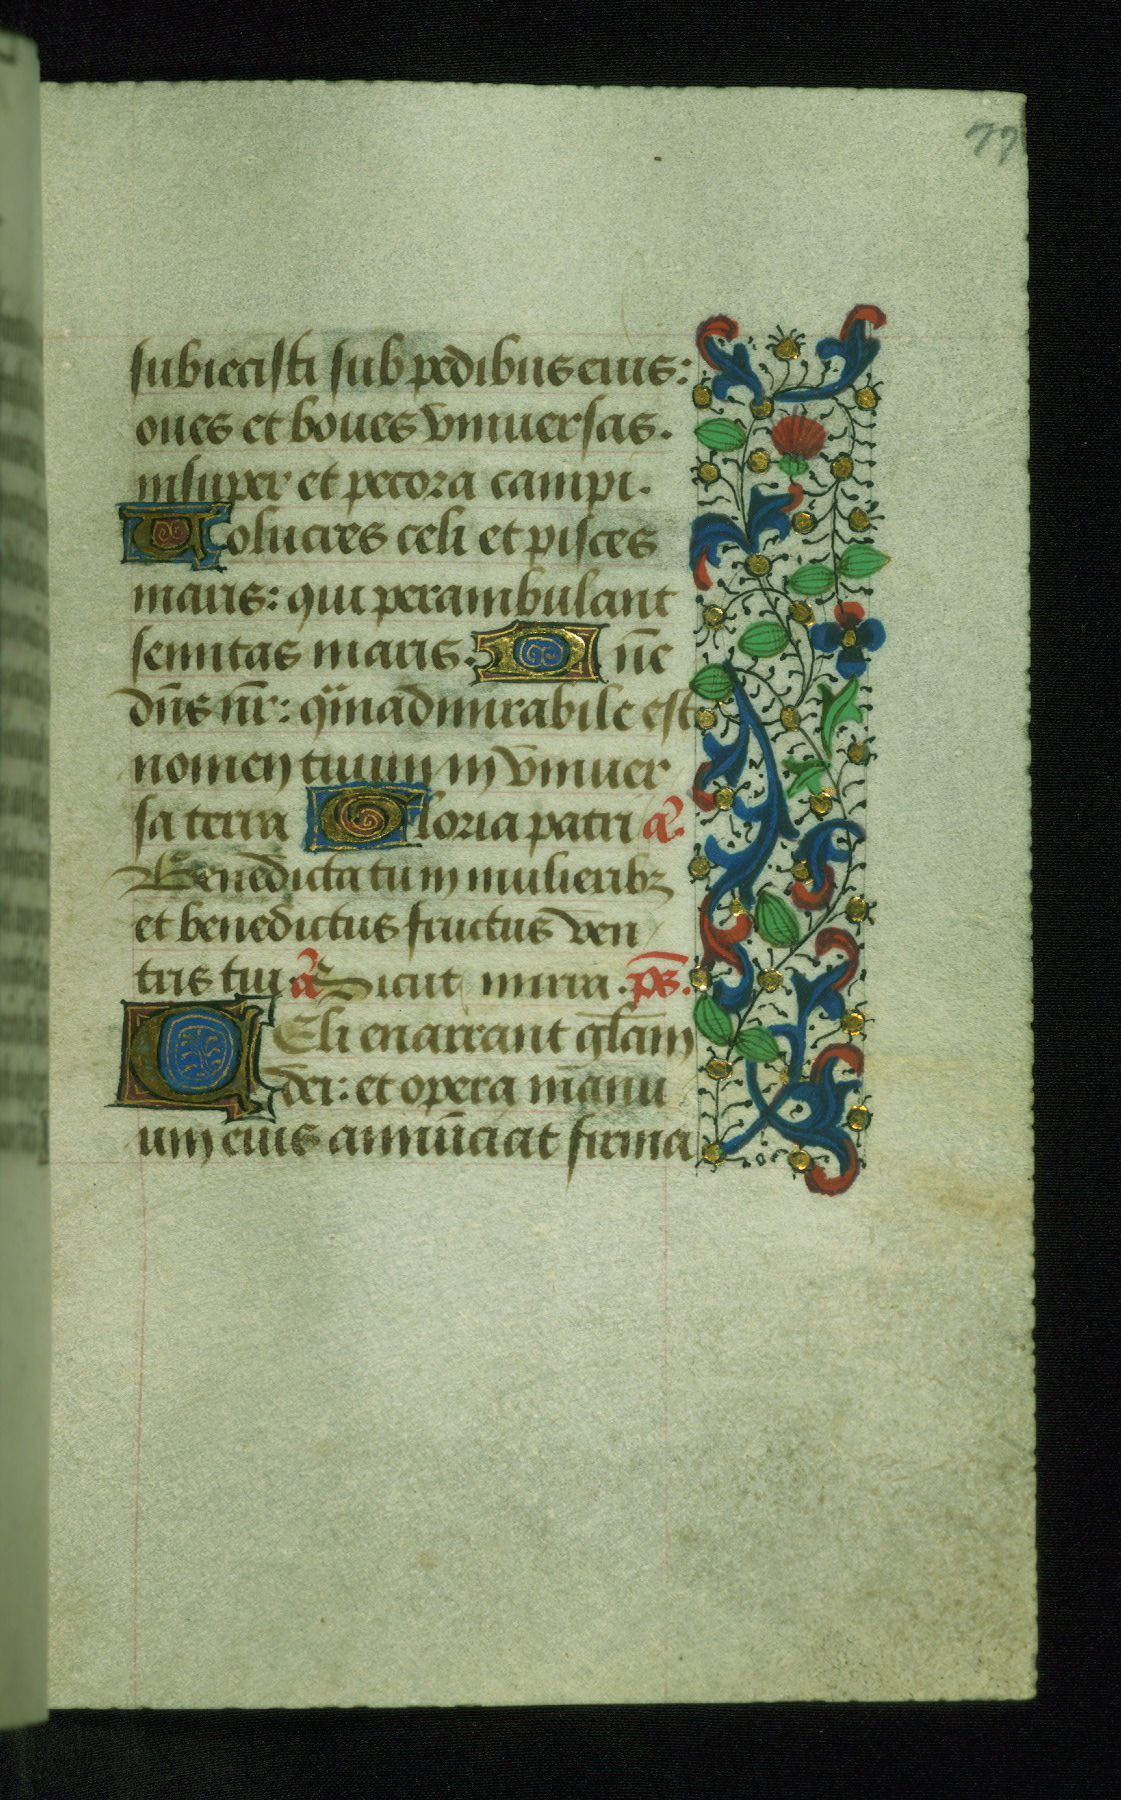 77
subiecisti sub pedibus eius:
oues et boues vniuersas.
insuper et pecora campi.
Volucres celi et pisces
maris: qui perambulant
semitas maris. Dn̄e
dn̄s nr̄: qm̄ admirabile est
nomen tuum in vniuer
sa terra Gloria patri a.
Benedicta tu in mulieribꝫ
et benedictus fructus ven
tris tui a Sicut mirra. ps.
Celi enarrant gl̄am
dei: et opera manu
um eius annūciat firma